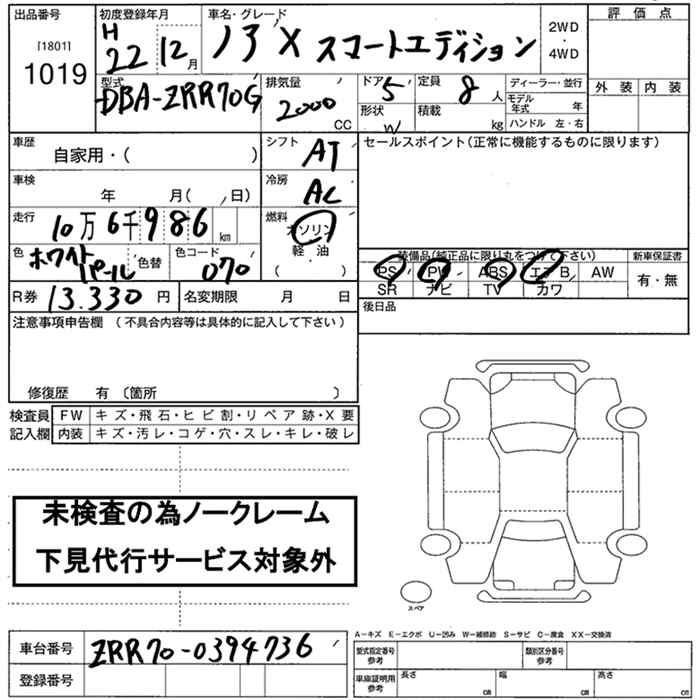 出品番号
[1801]
1019
初度登録年月
H
22 12月
車名・グレード
ノア X スマートエディション
2WD
・
4WD
評価点
外装 内装
型式
DBA-ZRR70G
排気量
2000
CC
ドア 5
形状 W
定員 8 人
積載 kg
ディーラー・並行
モデル年式 年
ハンドル 左・右
車歴
自家用・( )
シフト
AT
セールスポイント(正常に機能するものに限ります)
車検
年 月( 、日)
冷房
AC
走行
10万 6千 986 km
燃料
ガソリン
軽・油
( ・ )
色
ホワイトパール
色替
色コード
070
装備品(純正品に限り丸をつけて下さい)
PS PW ABS エアB AW
SR ナビ TV カワ
新車保証書
有・無
R券 13.330 円
名変期限 月 日
後日品
注意事項申告欄 (不具合内容等は具体的に記入して下さい)
修復歴 有 〔箇所 〕
検査員記入欄
FW キズ・飛石・ヒビ割・リペア跡・X要
内装 キズ・汚レ・コゲ・穴・スレ・キレ・破レ
未検査の為ノークレーム
下見代行サービス対象外
スペア
車台番号 ZRR70-0394736
登録番号
A−キズ E−エクボ U−凹み W−補修跡 S−サビ C−腐食 XX−交換済
型式指定番号 参考
類別区分番号 参考
車庫証明用 参考
長さ cm
幅 cm
高さ cm